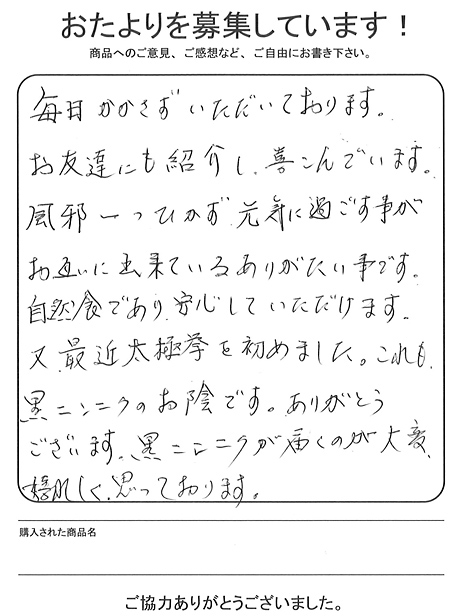 おたよりを募集しています！
商品へのご意見、ご感想など、ご自由にお書き下さい。
毎日かかさずいただいております。
お友達にも紹介し、喜こんでいます。
風邪一つひかず、元気に過ごす事が
お互いに出来ているありがたい事です。
自然食であり、安心していただけます。
又、最近太極拳を初めました。これも、
黒ニンニクのお陰です。ありがとう
ございます。黒ニンニクが届くのが大変、
嬉しく、思っております。
購入された商品名
ご協力ありがとうございました。